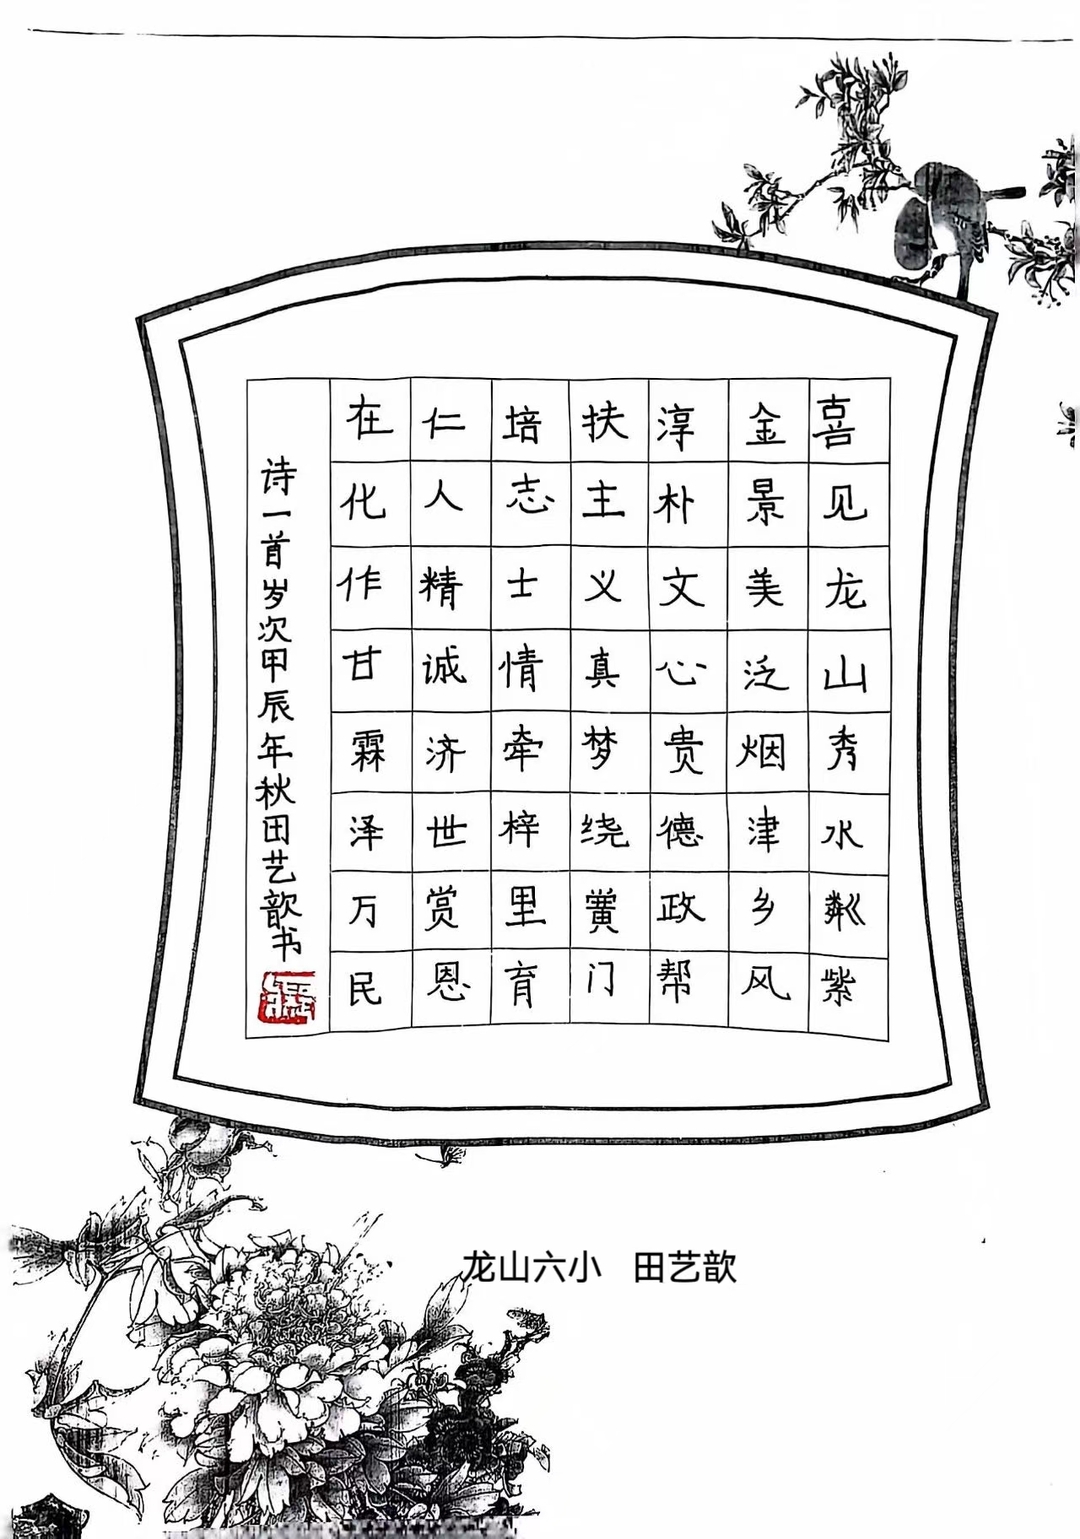 喜见龙山秀水粼紫
金景美泛烟津乡风
淳朴文心贵德政帮
扶主义真梦绕黉门
培志士情牵梓里育
仁人精诚济世赏恩
在化作甘霖泽万民
诗一首岁次甲辰年秋田艺歆书
龙山六小 田艺歆